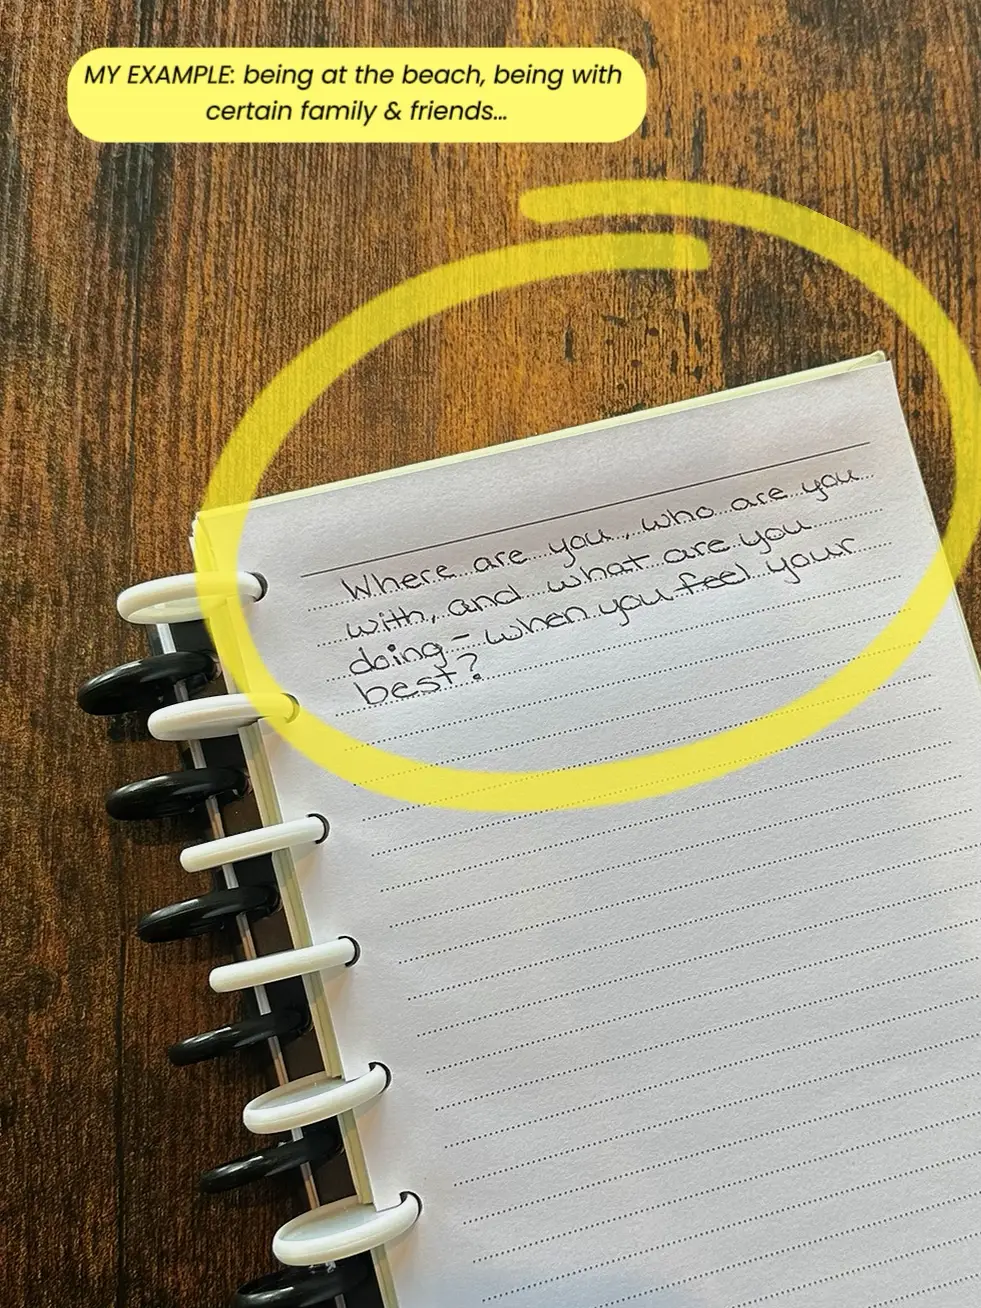 MY EXAMPLE: being at the beach, being with
certain family & friends...
Where are you, who are you
with, and what are you
doing - when you feel your
best?